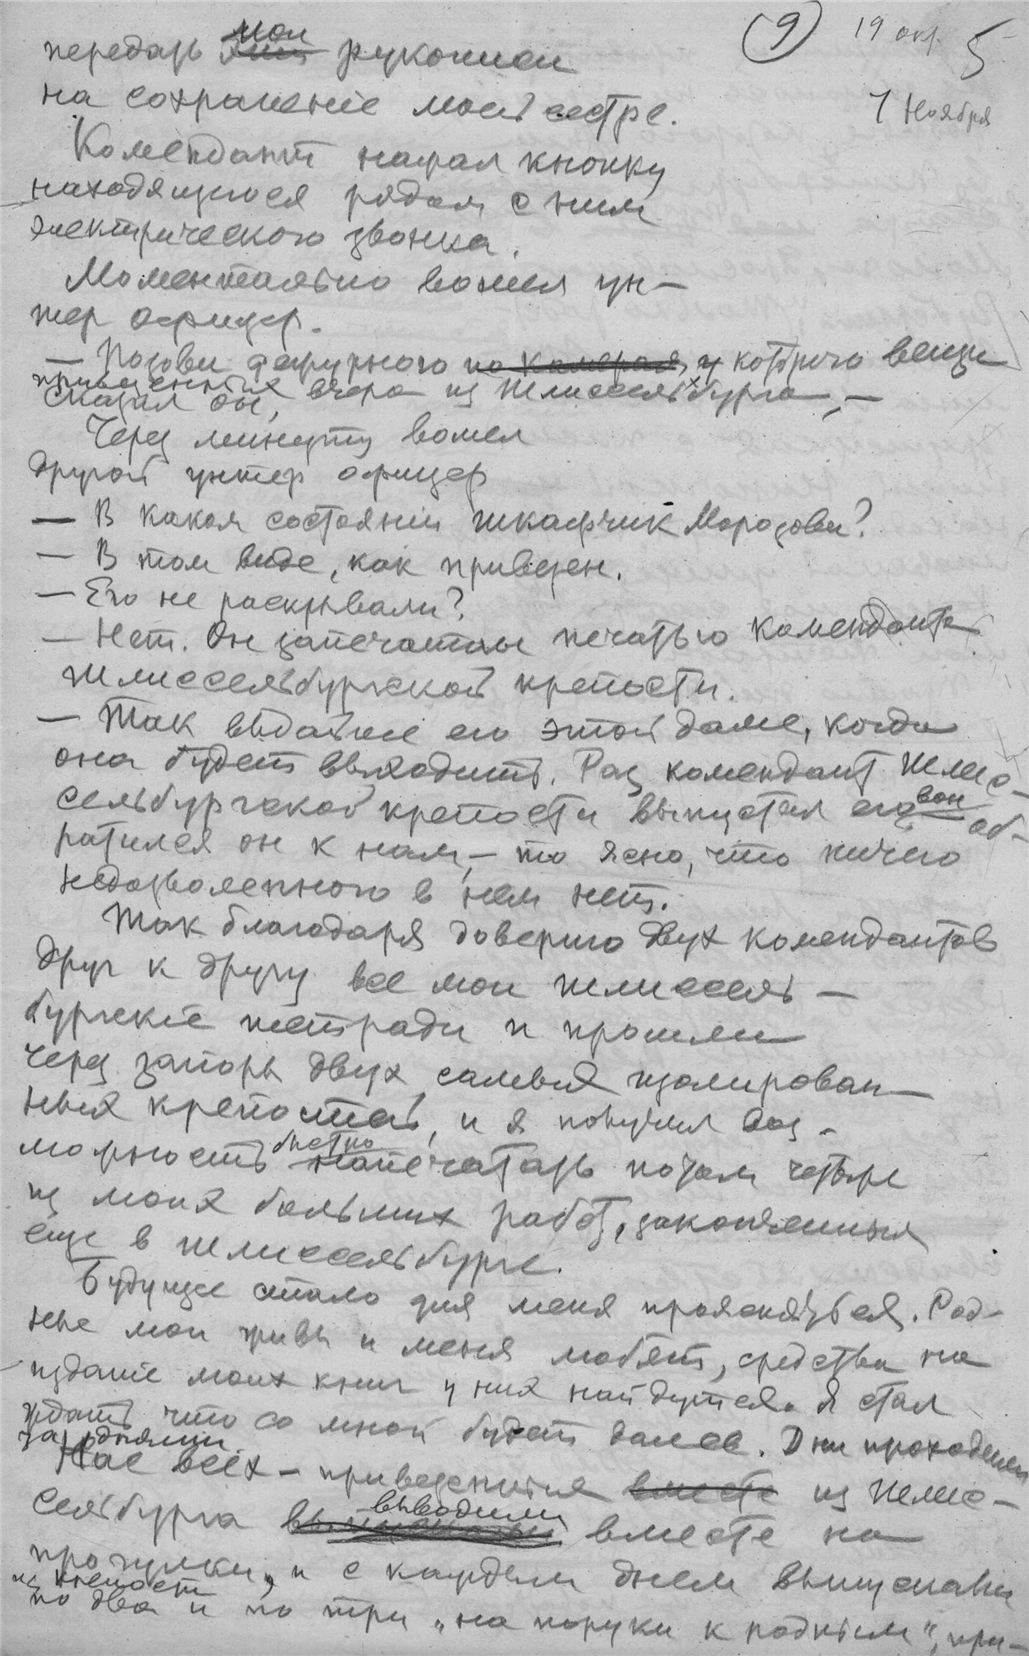 (9) 19 окт. 5
7 Ноября
передать мои рукописи
на сохраненіе моей сестре.
Комендант нажал кнопку
находящегося рядом с ним
электрического звонка.
Моментально вошел ун-
тер офицер.
— Позови дежурного по камерам, у которого вещи
привезенных вчера из Шлиссельбурга, —
сказал он,
Через минуту вошел
другой унтер офицер
— В каком состояніи шкафчик Морозова?
— В том виде, как привезен.
— Его не раскрывали?
— Нет. Он запечатан печатью коменданта
Шлиссельбургской крепости.
— Так выдайте его этой даме, когда
она будет выходить. Раз комендант Шлис-
сельбургской крепости выпустил его вон об-
ратился он к нам, — то ясно, что ничего
недозволенного в нем нет.
Так благодаря доверию двух комендантов
друг к другу все мои шлиссель-
бургскіе тетради и прошли
через запоры двух самых изолирован-
ных крепостей, и я получил воз-
можность быстро напечатать потом четыре
из моих больших работ, законченных
еще в Шлиссельбурге.
Будущее стало для меня проясняться. Род-
ные мои живы и меня любят, средства на
изданіе моих книг у них найдутся. Я стал
ждать что со мной будет далее. Дни проходили
за днями.
Нас всех — привезенных вместе из Шлис-
сельбурга выводили вместе на
прогулки, и с каждым днем выпускали
из крепости
по два и по три „на поруки к родным“, при-